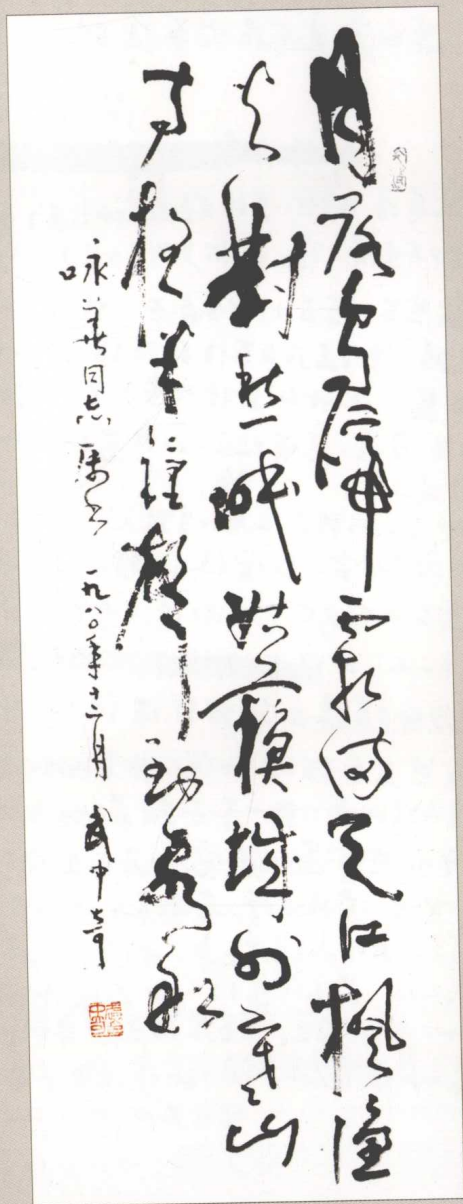 月落烏啼霜滿天江楓漁
火對愁眠姑蘇城外寒山
寺夜半鐘聲到客船
咏華同志属书 一九八〇年十二月 武中奇